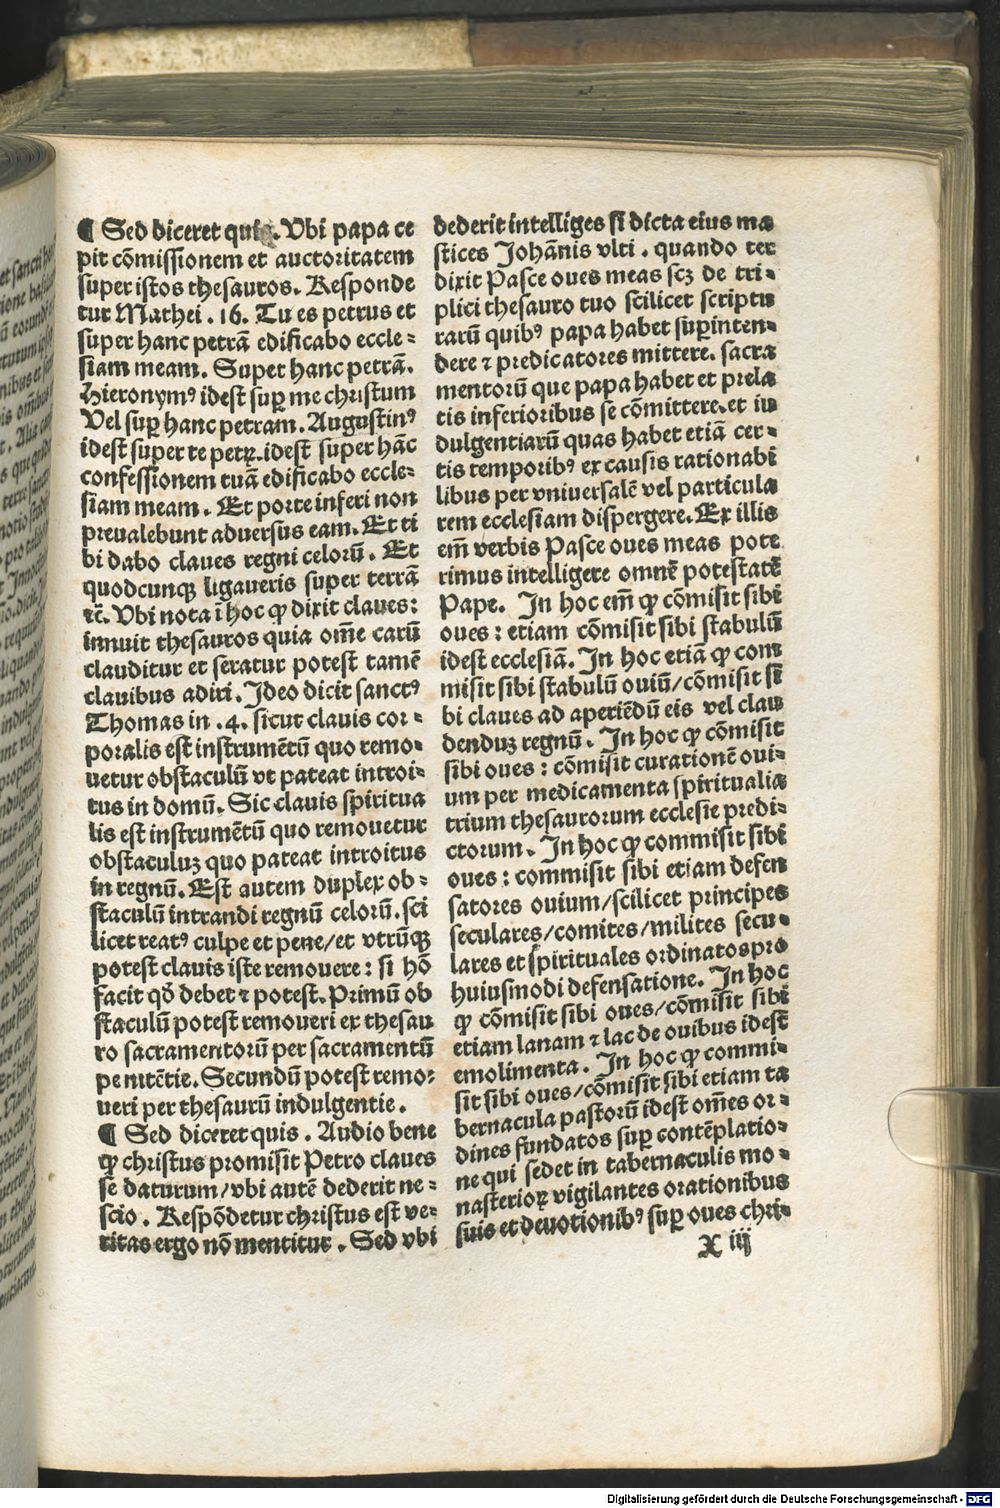 ¶ Sed diceret quis. Vbi papa ce
pit cōmissionem et auctoritatem
super istos thesauros. Responde
tur Mathei .16. Tu es petrus et
super hanc petrā edificabo eccle⸗
siam meam. Super hanc petrā.
Hieronymꝰ idest suꝑ me christum
Vel suꝑ hanc petram. Augustinꝰ
idest super te petꝝ.idest super hāc
confessionem tuā edificabo eccle⸗
siam meam. Et porte inferi non
preualebunt aduersus eam. Et ti
bi dabo claues regni celorū. Et
quodcunqꝫ ligaueris super terrā
⁊c̄. Vbi nota ī hoc ꝙ dixit claues:
innuit thesauros quia om̄e carū
clauditur et seratur potest tamē
clauibus adiri. Ideo dicit sanctꝰ
Thomas in .4. sicut clauis cor⸗
poralis est instrumētū quo remo⸗
uetur obstaculū vt pateat introi⸗
tus in domū. Sic clauis spiritua
lis est instrumētū quo remouetur
obstaculuꝫ quo pateat introitus
in regnū. Est autem duplex ob⸗
staculū intrandi regnū celorū.sci
licet reatꝰ culpe et pene/et vtrūqꝫ
potest clauis iste remouere: si hō
facit qđ debet ⁊ potest. Primū ob
staculū potest remoueri ex thesau
ro sacramentorū per sacramentū
penitētie. Secundū potest remo⸗
ueri per thesaurū indulgentie.
¶ Sed diceret quis. Audio bene
ꝙ christus promisit Petro claues
se daturum/vbi autē dederit ne⸗
scio. Respōdetur christus est ve⸗
ritas ergo nō mentitur. Sed vbi
dederit intelliges si dicta eius ma
stices Johānis vlti. quando ter
dixit Pasce oues meas scꝫ de tri⸗
plici thesauro tuo scilicet scriptu
rarū quibꝰ papa habet suꝑinten⸗
dere ⁊ predicatores mittere. sacra
mentorū que papa habet et prela
tis inferioribus se cōmittere.et in
dulgentiarū quas habet etiā cer⸗
tis temporibꝰ ex causis rationabi
libus per vniuersalē vel particula
rem ecclesiam dispergere. Ex illis
em̄ verbis Pasce oues meas pote
rimus intelligere omnē potestatē
Pape. In hoc em̄ ꝙ cōmisit sibi
oues: etiam cōmisit sibi stabulū
idest ecclesiā. In hoc etiā ꝙ com
misit sibi stabulū ouiū/cōmisit si
bi claues ad aperiēdū eis vel clau
denduꝫ regnū. In hoc ꝙ cōmisit
sibi oues: cōmisit curationē oui⸗
um per medicamenta spiritualia
trium thesaurorum ecclesie predi⸗
ctorum. In hoc ꝙ commisit sibi
oues: commisit sibi etiam defen
satores ouium/scilicet principes
seculares/comites/milites secu⸗
lares et spirituales ordinatos pro
huiusmodi defensatione. In hoc
ꝙ cōmisit sibi oues/cōmisit sibi
etiam lanam ⁊ lac de ouibus idest
emolimenta. In hoc ꝙ commi⸗
sit sibi oues/cōmisit sibi etiam ta
bernacula pastorū idest om̄es or⸗
dines fundatos suꝑ contēplatio⸗
ne qui sedet in tabernaculis mo⸗
nasterioꝝ vigilantes orationibus
suis et deuotionibꝰ suꝑ oues chri⸗
X iij
Digitalisierung gefördert durch die Deutsche Forschungsgemeinschaft - DFG